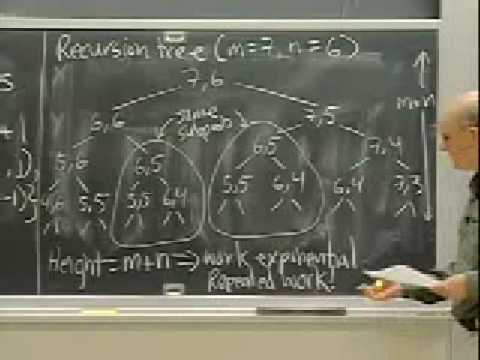 Recursion tree (m=7, n=6)
7,6
m+n
same subprob
6,6 7,5
5,6 6,5 6,5 7,4
4,6 5,5 5,5 6,4 5,5 6,4 6,4 7,3
Height = m+n ⇒ work exponential
Repeated work!